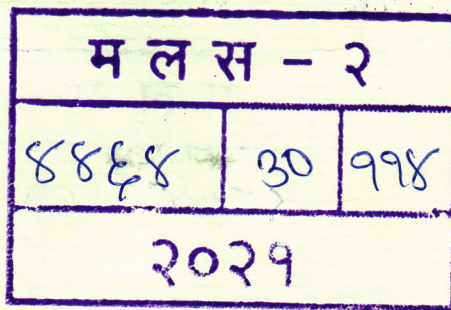 म ल स - २
४४६४ ३० ११४
२०२१